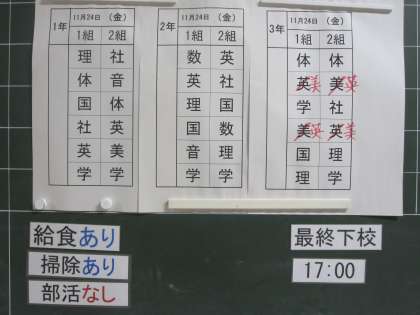 1年 11月24日 (金)
1組 2組
理 社
体 音
国 体
社 英
英 美
学 学
2年 11月24日 (金)
1組 2組
数 英
英 社
理 国
国 数
音 理
学 学
3年 11月24日 (金)
1組 2組
体 体
英 美 美 英
学 社
美 英 英 美
国 理
理 学
給食あり
掃除あり
部活なし
最終下校
17:00